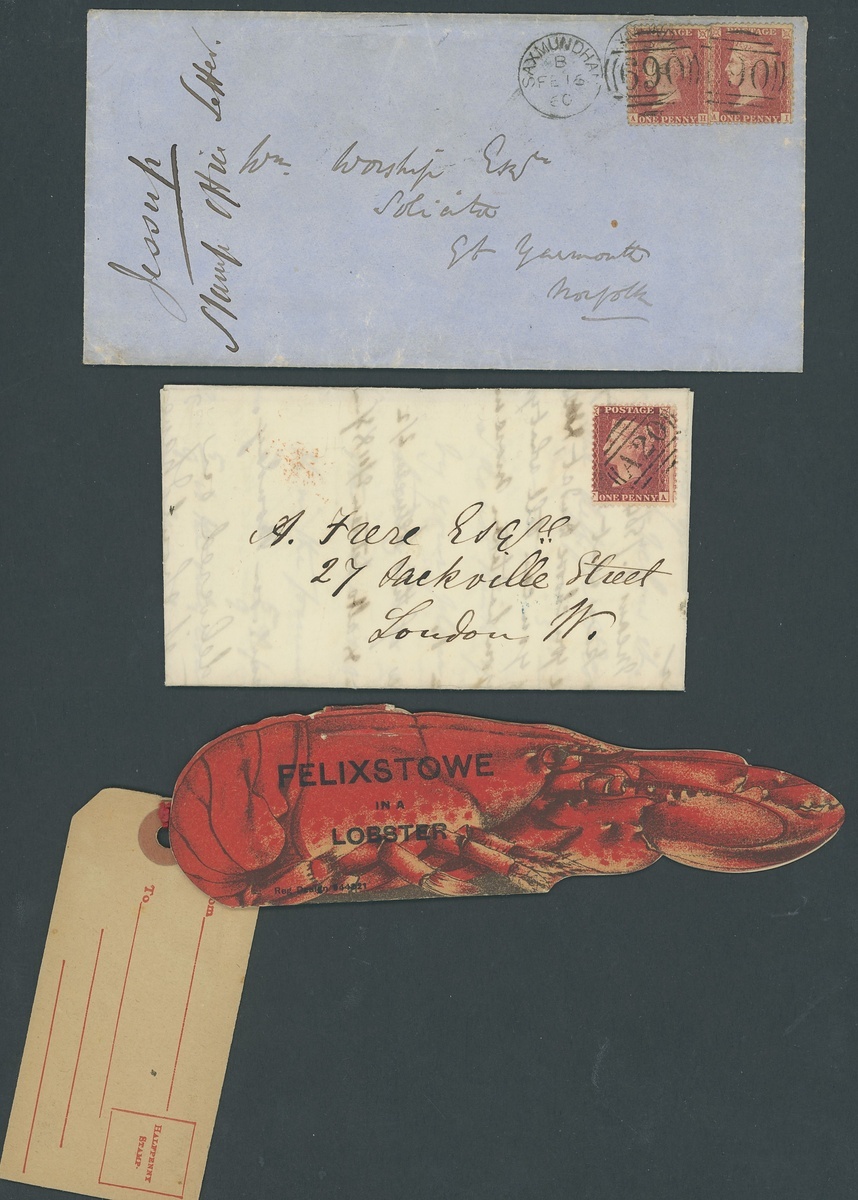 SAXMUNDHAM
B
FE 16
60
POSTAGE
690
90
A ONE PENNY H
A ONE PENNY I
Jessup
Stamp Office Letter.
Wm. Worship Esqr
Solicitor
Gt Yarmouth
Norfolk
POSTAGE
A20
ONE PENNY A
A. Frere Esqre.
27 Sackville Street
London W.
FELIXSTOWE
IN A
LOBSTER
Reg Design
To
om
HALFPENNY
STAMP.